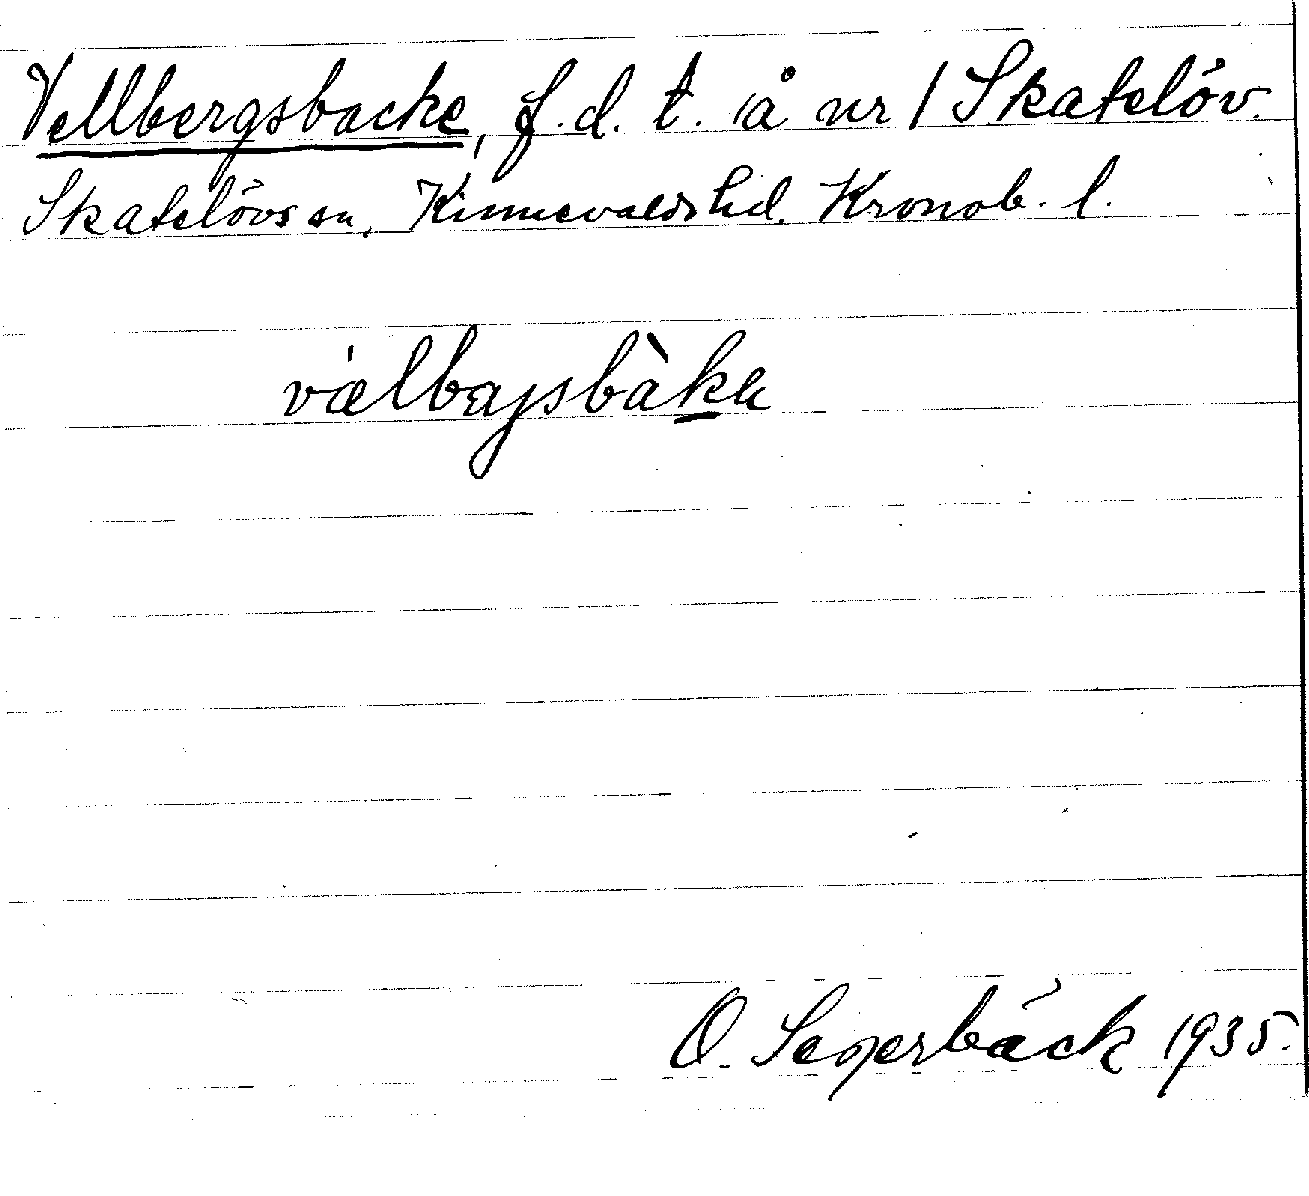 Vellbergsbacke, f.d. t. å nr 1 Skatelöv.
Skatelövs sn, Kinnevalds hd. Kronob. l.
vælbæjsbàkk
O. Segerbäck 1935.